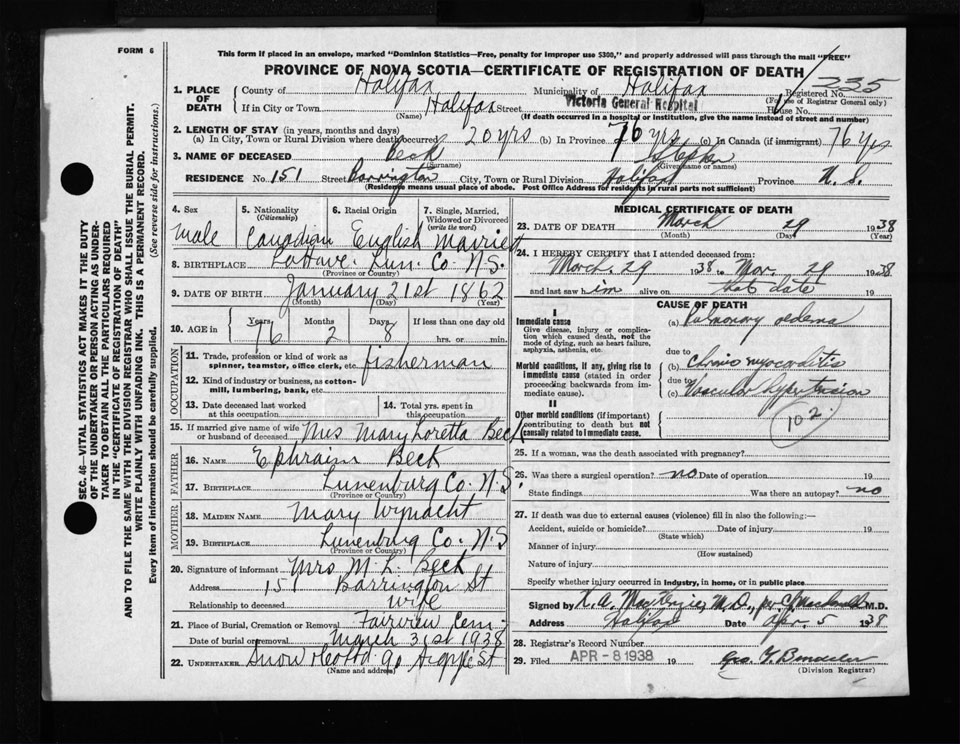 FORM 6
This form if placed in an envelope, marked "Dominion Statistics—Free, penalty for improper use $300," and properly addressed will pass through the mail "FREE"
PROVINCE OF NOVA SCOTIA—CERTIFICATE OF REGISTRATION OF DEATH
1. PLACE OF DEATH
County of Halifax Municipality of Halifax Registered No. 235
(For use of Registrar General only)
If in City or Town Halifax Street Victoria General Hospital House No.
(Name) (If death occurred in a hospital or institution, give the name instead of street and number)
2. LENGTH OF STAY (in years, months and days)
(a) In City, Town or Rural Division where death occurred 20 yrs (b) In Province 76 yrs (c) In Canada (if immigrant) 76 yrs
3. NAME OF DECEASED Beck
(Surname) (Given name or names)
RESIDENCE No. 151 Street Barrington City, Town or Rural Division Halifax Province N. S.
(Residence means usual place of abode. Post Office Address for residents in rural parts not sufficient)
4. Sex male
5. Nationality (Citizenship) Canadian
6. Racial Origin English
7. Single, Married, Widowed or Divorced (write the word) Married
8. BIRTHPLACE LaHave Lun. Co. N.S.
(Province or Country)
9. DATE OF BIRTH January 21st 1862
(Month) (Day) (Year)
10. AGE in Years 76 Months 2 Days 8 If less than one day old
hrs. or min.
OCCUPATION
11. Trade, profession or kind of work as spinner, teamster, office clerk, etc. fisherman
12. Kind of industry or business, as cotton-mill, lumbering, bank, etc.
13. Date deceased last worked at this occupation
14. Total yrs. spent in this occupation
15. If married give name of wife or husband of deceased Mrs Mary Loretta Beck
FATHER
16. NAME Ephraim Beck
17. BIRTHPLACE Lunenburg Co. N.S.
(Province or Country)
MOTHER
18. MAIDEN NAME Mary Wynacht
19. BIRTHPLACE Lunenburg Co. N.S
(Province or Country)
20. Signature of informant Mrs M. L. Beck
Address 151 Barrington St
Relationship to deceased wife
21. Place of Burial, Cremation or Removal Fairview Cem
Date of burial or removal March 31st 1938
22. UNDERTAKER Snow 90 Argyle St
(Name and address)
MEDICAL CERTIFICATE OF DEATH
23. DATE OF DEATH March 29 1938
(Month) (Day) (Year)
24. I HEREBY CERTIFY that I attended deceased from:
March. 29 1938 to Mar. 29 1938
and last saw him alive on that date 19
CAUSE OF DEATH
I
Immediate cause
Give disease, injury or complication which caused death, not the mode of dying, such as heart failure, asphyxia, asthenia, etc.
(a) Pulmonary oedema
due to
Morbid conditions, if any, giving rise to immediate cause (stated in order proceeding backwards from immediate cause).
(b) Chronic myocarditis
due to
(c) Vascular hypertension
II
Other morbid conditions (if important) contributing to death but not causally related to immediate cause.
102.
25. If a woman, was the death associated with pregnancy?
26. Was there a surgical operation? no Date of operation 19
State findings Was there an autopsy? no
27. If death was due to external causes (violence) fill in also the following:—
Accident, suicide or homicide? Date of injury 19
(State which)
Manner of injury
(How sustained)
Nature of injury
Specify whether injury occurred in industry, in home, or in public place
Signed by M.D., per M.D.
Address Halifax Date Apr. 5 1938
28. Registrar's Record Number
29. Filed APR - 8 1938 19
(Division Registrar)
SEC. 46—VITAL STATISTICS ACT MAKES IT THE DUTY
OF THE UNDERTAKER OR PERSON ACTING AS UNDER-
TAKER TO OBTAIN ALL THE PARTICULARS REQUIRED
IN THE "CERTIFICATE OF REGISTRATION OF DEATH"
AND TO FILE THE SAME WITH THE DIVISION REGISTRAR WHO SHALL ISSUE THE BURIAL PERMIT.
WRITE PLAINLY WITH UNFADING INK. THIS IS A PERMANENT RECORD.
Every item of information should be carefully supplied. (See reverse side for instructions.)